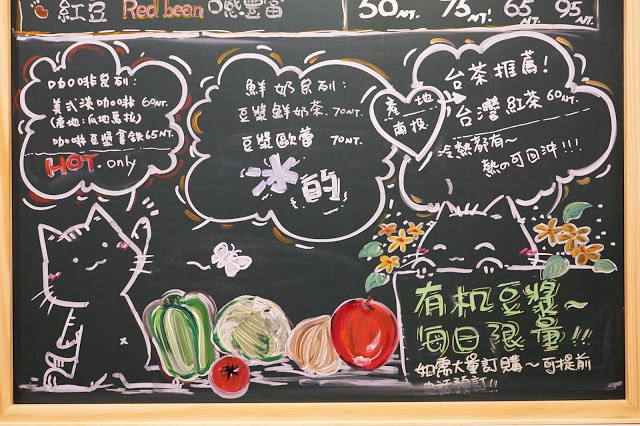 紅豆 Red bean 口感豐富 50NT. 75NT. 65NT. 95NT.
咖啡系列:
美式淡咖啡 60NT.
(產地:瓜地馬拉)
咖啡豆漿拿鐵65NT.
HOT. only
鮮奶系列:
豆漿鮮奶茶. 70NT.
豆漿歐蕾 70NT.
冰的
產地
南投
台茶推薦!
台灣紅茶60NT.
冷熱都有~
熱の可回沖!!!
有机豆漿~
每日限量!!
如需大量訂購~可提前
電話預訂!!